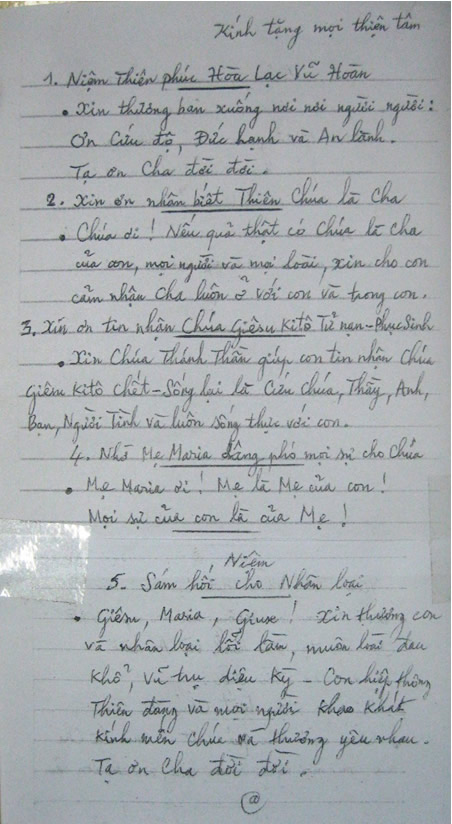 Kính tặng mọi thiện tâm
1. Niệm Thiên phúc Hòa Lạc Vũ Hoàn
• Xin thương ban xuống nơi nơi người người:
Ơn Cứu độ, Đức hạnh và An lành.
Tạ ơn Cha đời đời.
2. Xin ơn nhận biết Thiên Chúa là Cha
• Chúa ơi! Nếu quả thật có Chúa là Cha
của con, mọi người và mọi loài, xin cho con
cảm nhận Cha luôn ở với con và trong con.
3. Xin ơn tin nhận Chúa Giêsu Kitô Tử nạn-Phục Sinh
• Xin Chúa Thánh Thần giúp con tin nhận Chúa
Giêsu Kitô chết-Sống lại là Cứu chúa, Thầy, Anh,
Bạn, Người Tình và luôn sống thực với con.
4. Nhờ Mẹ Maria dâng phó mọi sự cho Chúa
• Mẹ Maria ơi! Mẹ là Mẹ của con!
Mọi sự của con là của Mẹ!
Niệm
5- Sám hối cho Nhân loại
• Giêsu, Maria, Giuse! Xin thương con
và nhân loại lỗi lầm, muôn loài đau
khổ, vũ trụ diệu kỳ - Con hiệp thông
Thiên đàng và mọi người khao khát
kính mến Chúa và thương yêu nhau.
Tạ ơn Cha đời đời.
@